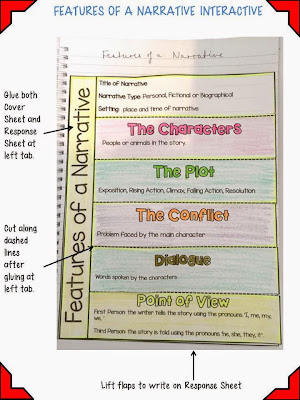 FEATURES OF A NARRATIVE INTERACTIVE
Features of a Narrative
Glue both
Cover
Sheet and
Response
Sheet at
left tab.
Cut along
dashed
lines
after
gluing at
left tab.
Features of a Narrative
Title of Narrative
Narrative Type: Personal, Fictional or Biographical
Setting: place and time of narrative
The Characters
People or animals in the story.
The Plot
Exposition, Rising Action, Climax, Falling Action, Resolution
The Conflict
Problem faced by the main character
Dialogue
Words spoken by the characters
Point of View
First Person the writer tells the story using the pronouns "I, me, my,
we."
Third Person the story is told using the pronouns he, she, they, it".
Lift flaps to write on Response Sheet